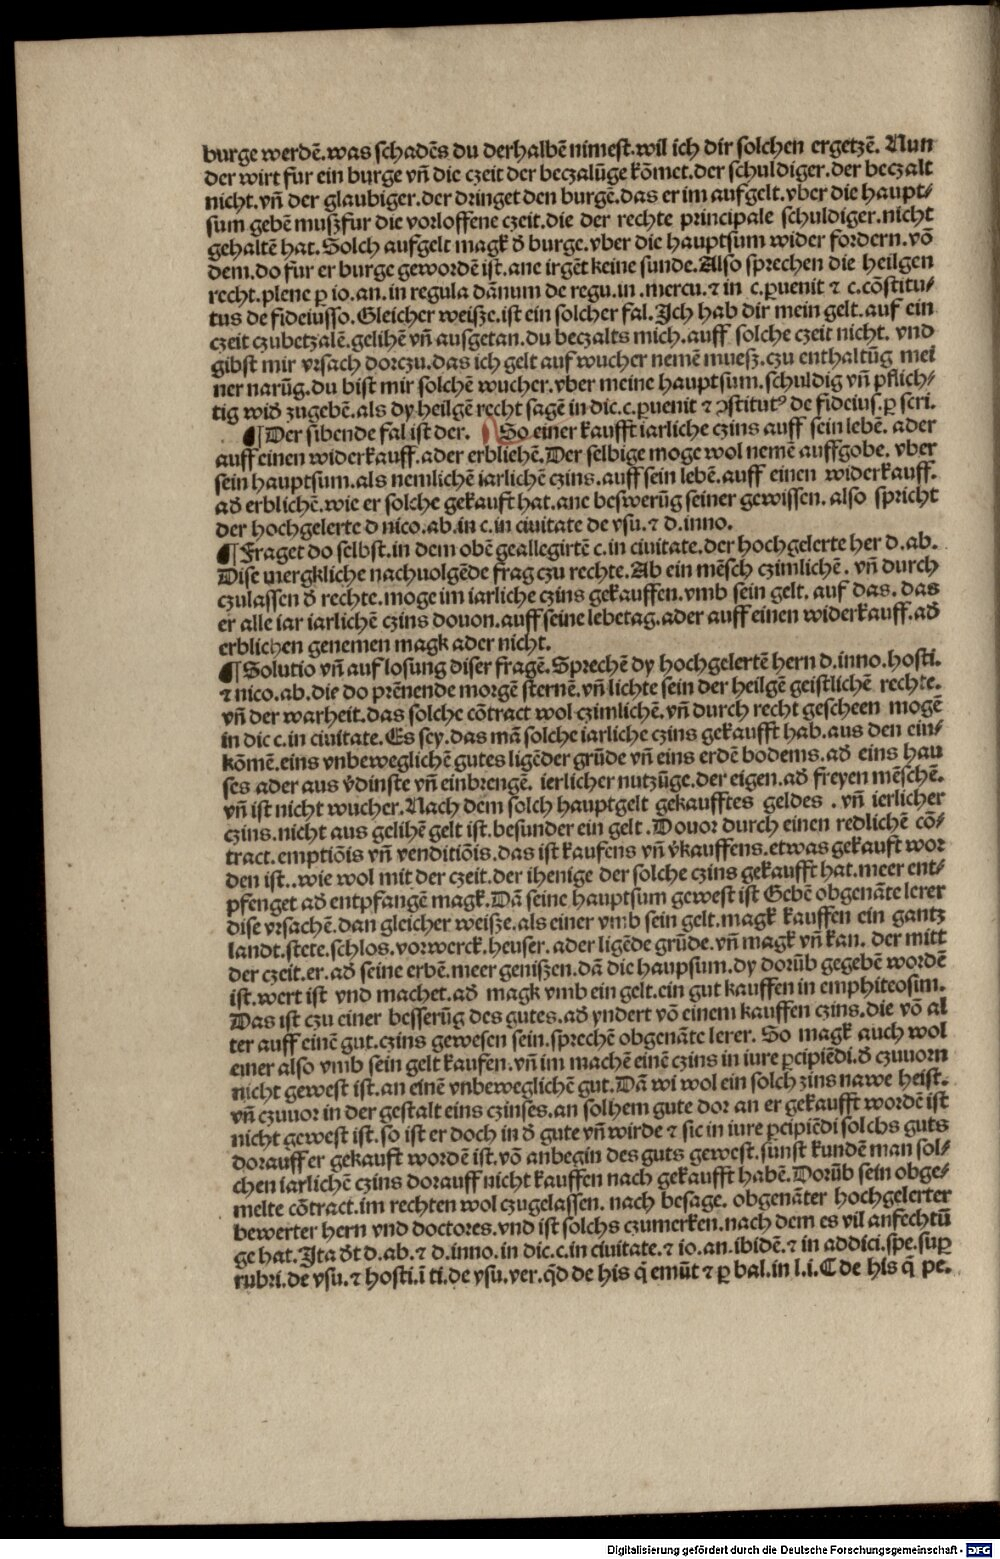 burge werdē. was schadēs du derhalbē nimest. wil ich dir solchen ergetzē. Nun
der wirt fur ein burge vñ die czeit der beczalūge kōmet. der schuldiger. der beczalt
nicht. vñ der glaubiger. der dringet den burgē. das er im aufgelt. vber die haupt⸗
sum gebē muſz fur die vorloffene czeit. die der rechte principale schuldiger. nicht
gehaltē hat. Solch aufgelt magk ď burge. vber die hauptsum wider fordern. vō
dem. do fur er burge gewordē ist. ane irgēt keine sunde. Also sprechen die heilgen
recht. plene ꝑ io. an. in regula dānum de regu. iu. mercu. ⁊ in c. ꝑuenit ⁊ c. cōstitu⸗
tus de fideiusso. Gleicher weisze. ist ein solcher fal. Ich hab dir mein gelt. auf ein
czeit czubetzalē. gelihē vñ ausgetan. du beczalts mich. auff solche czeit nicht. vnd
gibst mir vrsach dorczu. das ich gelt auf wucher nemē muesz. czu enthaltūg mei
ner narūg. du bist mir solchē wucher. vber meine hauptsum. schuldig vñ pflich⸗
tig wiď zugebē. als dy heilgē recht sagē in dic. c. ꝑuenit ⁊ ꝯstitutꝰ de fideius. ꝑ scri.
¶ Der sibende fal ist der. So einer kaufft iarliche czins auff sein lebē. ader
auff einen widerkauff. ader erblichē. Der selbige moge wol nemē auffgobe. vber
sein hauptsum. als nemlichē iarlichē czins. auff sein lebē. auff einen widerkauff.
aď erblichē. wie er solche gekauft hat. ane beswerūg seiner gewissen. also spricht
der hochgelerte d nico. ab. in c. in ciuitate de vsu. ⁊ d. inno.
¶ Fraget do selbst. in dem obē geallegirtē c. in ciuitate. der hochgelerte her d. ab.
Dise mergkliche nachuolgēde frag czu rechte. Ab ein mēsch czimlichē. vñ durch
czulassen ď rechte. moge im iarliche czins gekauffen. vmb sein gelt. auf das. das
er alle iar iarlichē czins douon. auff seine lebetag. ader auff einen widerkauff. aď
erblichen genemen magk ader nicht.
¶ Solutio vñ auf losung diser fragē. Sprechē dy hochgelertē hern d. inno. hosti.
⁊ nico. ab. die do prēnende morgē sternē. vñ lichte sein der heilgē geistlichē rechte.
vñ der warheit. das solche cōtract wol czimlichē. vñ durch recht gescheen mogē
in dic c. in ciuitate. Es sey. das mā solche iarliche czins gekaufft hab. aus den ein⸗
kōmē. eins vnbeweglichē gutes ligēder grūde vñ eins erdē bodems. aď eins hau
ses ader aus v̓dinste vñ einbrengē. ierlicher nutzūge. der eigen. aď freyen mēschē.
vñ ist nicht wucher. Nach dem solch hauptgelt gekaufftes geldes . vñ ierlicher
czins. nicht aus gelihē gelt ist. besunder ein gelt . Douor durch einen redlichē cō⸗
tract. emptiōis vñ venditiōis. das ist kaufens vñ v̓kauffens. etwas gekauft wor
den ist.. wie wol mit der czeit. der ihenige der solche czins gekaufft hat. meer ent⸗
pfenget aď entpfangē magk. Dā seine hauptsum gewest ist Gebē obgenāte lerer
dise vrsachē. dan gleicher weisze. als einer vmb sein gelt. magk kauffen ein gantz
landt. stete. schlos. vorwerck. heuser. ader ligēde grūde. vñ magk vñ kan. der mitt
der czeit. er. aď seine erbē. meer geniszen. dā die haupsum. dy dorūb gegebē wordē
ist. wert ist vnd machet. aď magk vmb ein gelt. ein gut kauffen in emphiteosim.
Das ist czu einer besserūg des gutes. aď yndert vō einem kauffen czins. die vō al
ter auff einē gut. czins gewesen sein. sprechē obgenāte lerer. So magk auch wol
einer also vmb sein gelt kaufen. vñ im machē einē czins in iure ꝑcipiēdi. ď czuuorn
nicht gewest ist. an einē vnbeweglichē gut. Dā wi wol ein solch zins nawe heist.
vñ czuuor in der gestalt eins czinses. an solhem gute dor an er gekaufft wordē ist
nicht gewest ist. so ist er doch in ď gute vñ wirde ⁊ sic in iure ꝑcipiēdi solchs guts
dorauff er gekauft wordē ist. vō anbegin des guts gewest. sunst kundē man sol⸗
chen iarlichē czins dorauff nicht kauffen nach gekaufft habē. Dorūb sein obge⸗
melte cōtract. im rechten wol czugelassen. nach besage. obgenāter hochgelerter
bewerter hern vnd doctores. vnd ist solchs czumerken. nach dem es vil anfechtū
ge hat. Ita ďt d. ab. ⁊ d. inno. in dic. c. in ciuitate. ⁊ io. an. ibidē. ⁊ in addici. spe. suꝑ
rubri. de vsu. ⁊ hosti. ī ti. de vsu. ver. qď de his q̄ emūt ⁊ ꝑ bal. in l. i. C de his q̄ pe.
Digitalisierung gefördert durch die Deutsche Forschungsgemeinschaft - DFG